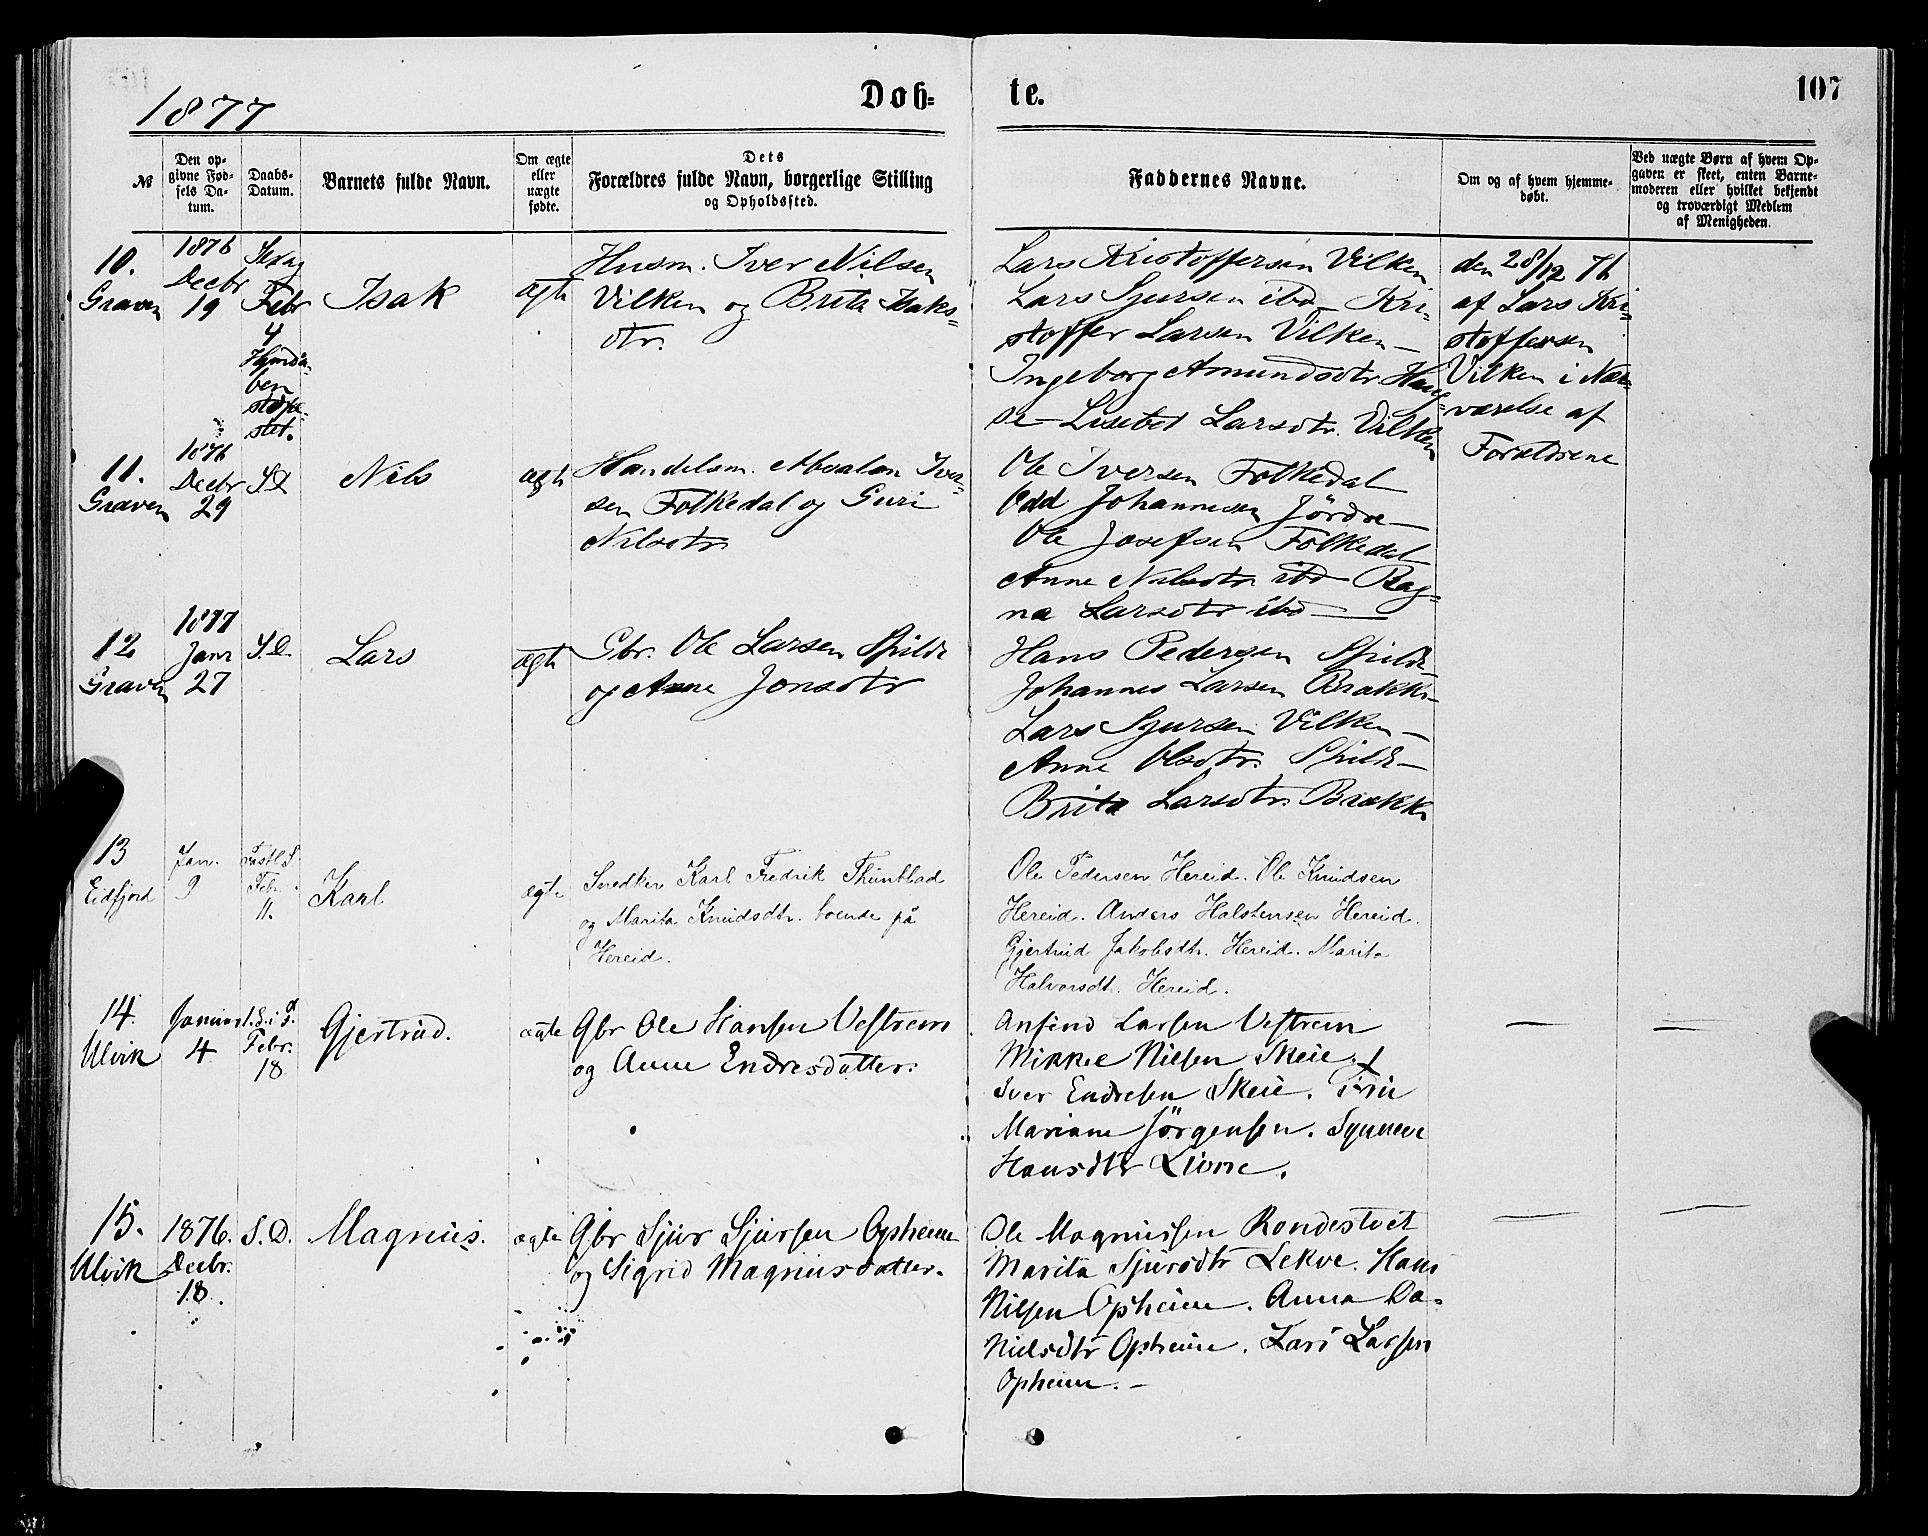 1877
Døb-
te.
107
№
Den op-
givne Fød-
sels Da-
tum.
Daabs-
Datum.
Barnets fulde Navn.
Om ægte
eller
uægte
fødte.
Dets
Forældres fulde Navn, borgerlige Stilling
og Opholdssted.
Faddernes Navne.
Om og af hvem hjemme-
døbt.
Ved uægte Børn af hvem Op-
gaven er skeet, enten Barne-
moderen eller hvilket bekjendt
og troværdigt Medlem
af Menigheden.
10.
Graven
1876
Decbr
19
Febr
4
Isak
ægte
Husm. Iver Nilsen
Vilken og Brita Isaks-
dtr.
Lars Kristoffersen Vilken
Lars Sjursen ibd Kri-
stoffer Larsen Vilken —
Ingeborg Amundsdtr Hau-
se — Lisebet Larsdtr. Vilken
den 28/12 76
af Lars Kri-
stoffersen
Vilken i Nær-
værelse af
Forældrene
11.
Graven
1876
Decbr
29
S.D.
Nils
ægte
Handelsm. Absalon Iver-
sen Folkedal og Guri
Nilsdtr
Ole Iversen Folkedal
Odd Johannesen Jördre —
Ole Josefsen Folkedal
Anne Nilsdtr ibd — Rag-
na Larsdtr ibd —
12
Graven
1877
Janr
27
S.D.
Lars
ægte
Gbr. Ole Larsen Spilde
og Anne Jonsdtr
Hans Pedersen Spilde
Johannes Larsen Brække —
Lars Sjursen Vilken —
Anne Olsdtr. Spilde —
Brita Larsdtr. Brække
13
Eidfjord
Jan.
9
Fastl. S.
Febr.
11.
Karl
ægte
Snedker Karl Fredrik Thunblad
og Marita Knudsdtr. boende på
Hereid.
Ole Pedersen Hereid. Ole Knudsen
Hereid. Anders Halstensen Hereid.
Gjertrud Jakobsdtr. Hereid. Marita
Halvorsdtr. Hereid.
14.
Ulvik
Januar
4
1. S. i F.
Febr.
18
Gjertrud.
ægte
Gbr Ole Hansen Vestrem
og Anne Endresdatter.
Anfind Larsen Vestrem
Mikkel Nilsen Skeie.
Iver Endresen Skeie. Frü
Mariane Jörgensen. Synneve
Hansdtr Lione.
—
—
15.
Ulvik
1876.
Decbr.
18.
S. D.
Magnus.
ægte
Gbr Sjur Sjursen Opheim
og Sigrid Magnusdatter.
Ole Magnussen Rondestvet
Marita Sjursdtr Lekve. Hans
Nilsen Opheim. Anna Da-
nielsdtr Opheim. Lars Larsen
Opheim. —
—
—